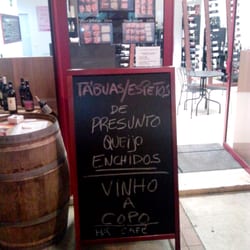 TÁBUAS/ESPETOS
DE
PRESUNTO
QUEIJO
ENCHIDOS
VINHO
A
COPO
HÁ CAFÉ